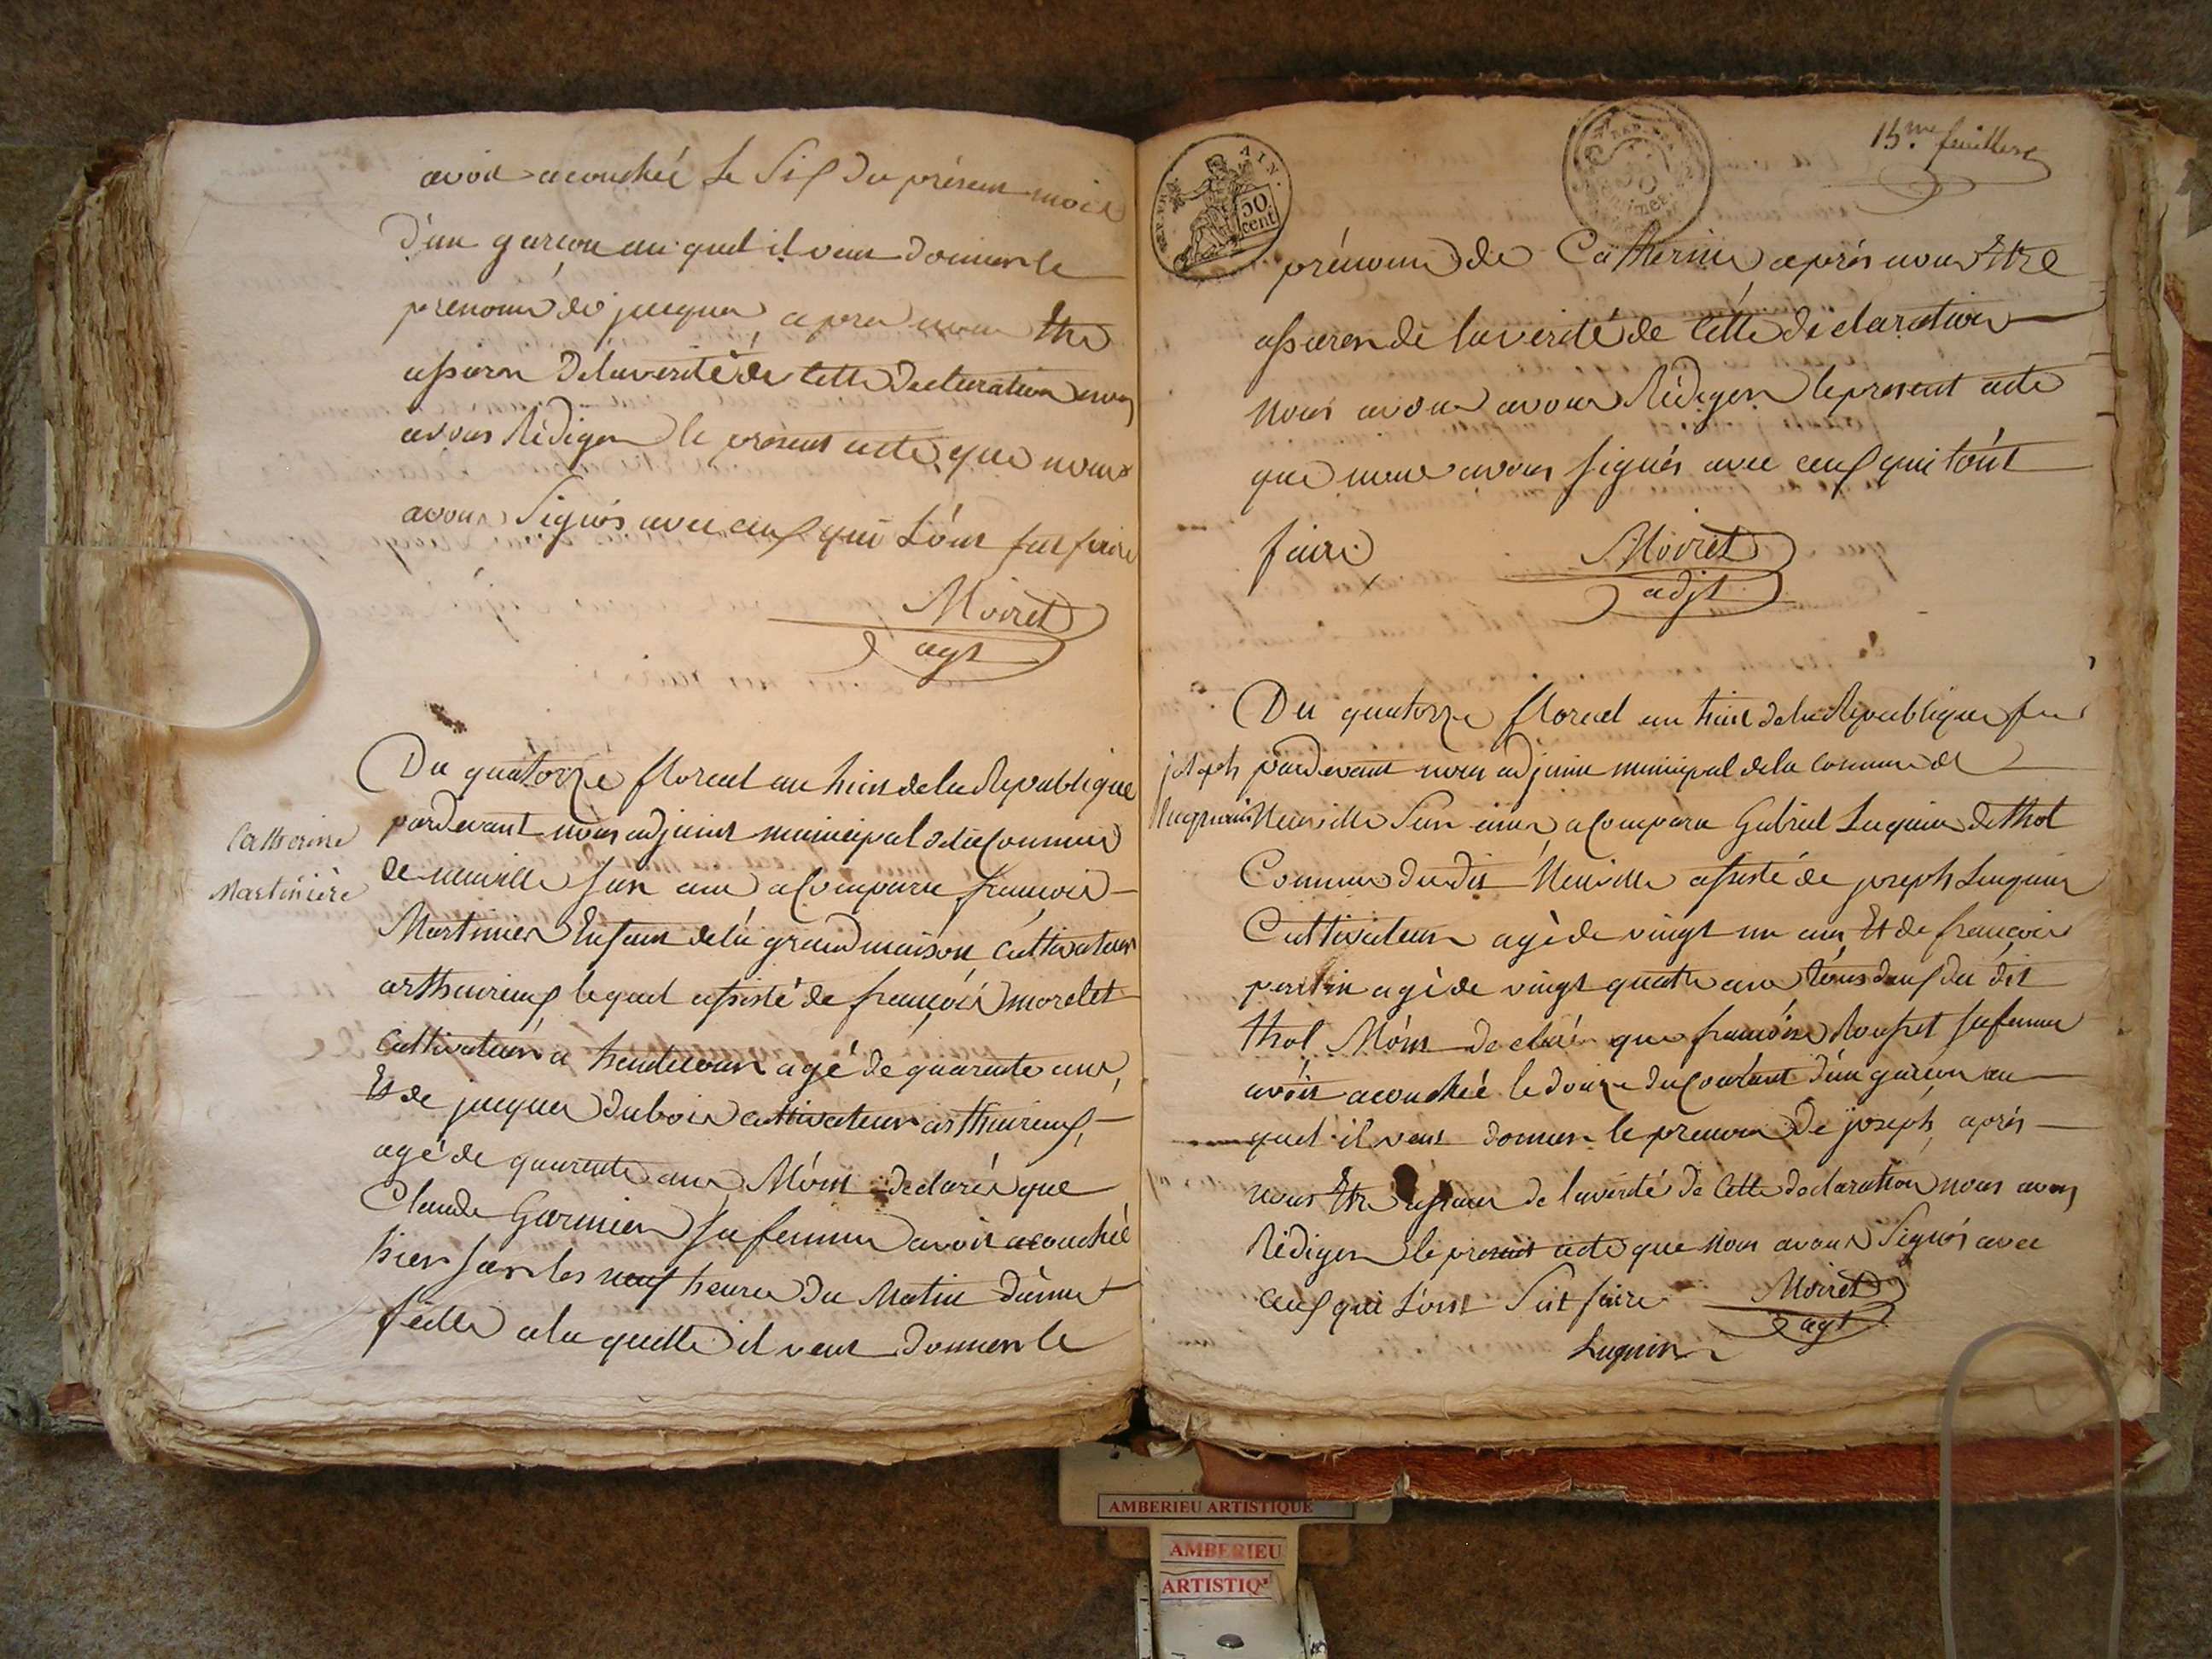 avoir acouchée le Six du présent mois
d'un garçon au quel il veut donner le
prenom de jacque apres nous Etre
assuren de la verité de cette declaration nous
avons Rédigen le present acte que nous
avons Signés avec ceux qui L'ont sut faire
Moiret
agt
Catherine
Martinière
Du quatorze floreal an huit de la Republique
pardevant nous adjoint municipal de la Commune
de neuville sur ain a Comparu francois
Martinier Enfant de la grand maison Cultivateur
a lequel assisté de francois morelet
Cultivateur a agé de quarente ans
Et de jacque Dubois cultivateur
agé de quarente ans M'ont declarés que
Claude Garnier sa femme avoir acouchée
hier sur les neuf heures du Matin d'une
feille a la quelle il veut Donner le
RÉP. FRA. AIN.
50 cent
15.me feuillet
prénom de Catherine après nous Etre
assuren de la verité de Cette déclaration
nous avons avons Rédigen le present acte
que nous avons signés avec ceux qui l'ont
faire
Moiret
adjt
Du quatorze floreal an huit de la Republique
joseph
pardevant nous adjoint municipal de la Commune de
Neuville Sur ain a Comparu Gabriel Luquin de thol
Commune du dit Neuville assisté de joseph Luquin
Cultivateur agé de vingt un ans Et de francois
agé de vingt quatre ans tous deux du dit
thol M'ont declaré que francoise Rousset sa femme
avoir acouchée le douze du Courant d'un garcon au
quel il veut donner le prenom De joseph après
nous Etre assuren de la verité de Cette declaration nous avons
Rédigen le present acte que nous avons Signés avec
Ceux qui L'ont Sut faire
Moiret
agt
Luquin
AMBERIEU ARTISTIQUE
AMBERIEU
ARTISTIQ